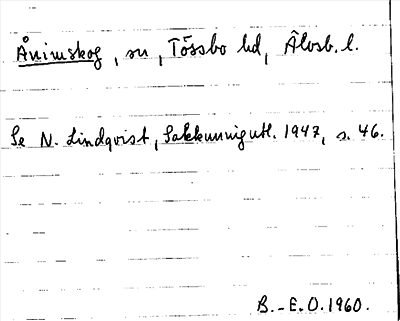 Ånimskog, sn, Tössbo hd, Älvsb. l.
Se N. Lindqvist, Sakkunnigutl. 1947, s. 46.
B.-E.O. 1960.